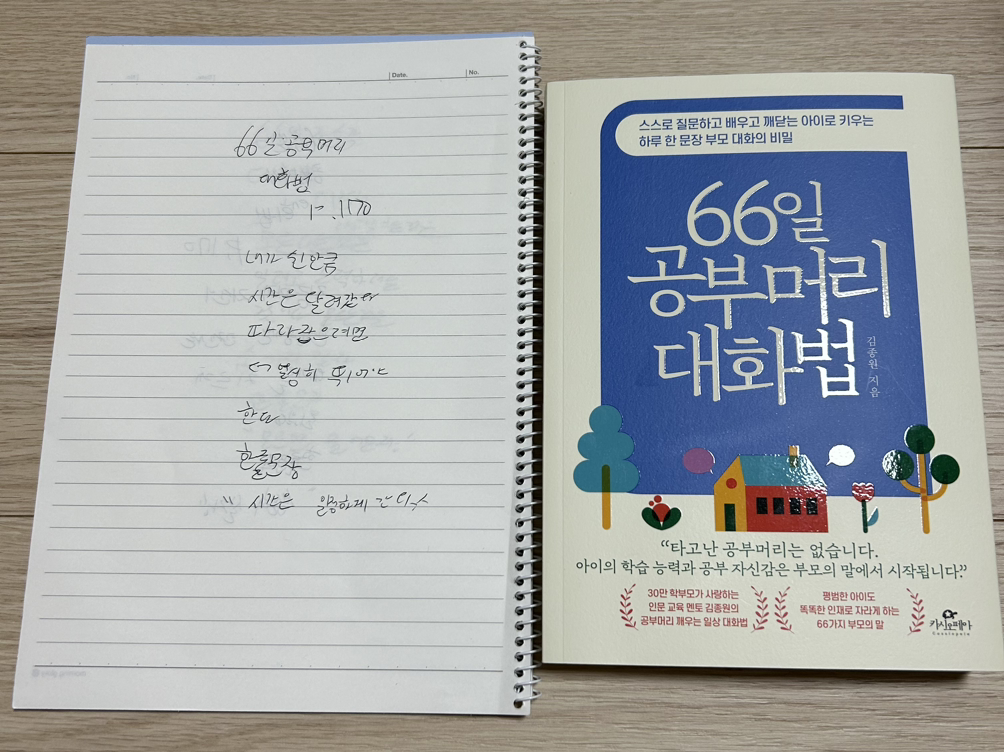 Date.
No.
66일 공부머리
대화법
P.170
내가 쉰만큼
시간은 달려간다
따라잡으려면
더 열심히 뛰어야
한다
한줄문장
" 시간은 일정하게
스스로 질문하고 배우고 깨닫는 아이로 키우는
하루 한 문장 부모 대화의 비밀
66일
공부머리
대화법
김종원 지음
“타고난 공부머리는 없습니다.
아이의 학습 능력과 공부 자신감은 부모의 말에서 시작됩니다.”
30만 학부모가 사랑하는
인문 교육 멘토 김종원의
공부머리 깨우는 일상 대화법
평범한 아이도
똑똑한 인재로 자라게 하는
66가지 부모의 말
카시오페아
Cassiopeia